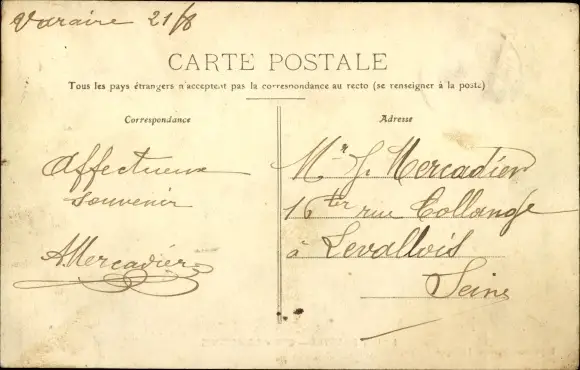 Varaire 21/8
CARTE POSTALE
Tous les pays étrangers n'acceptent pas la correspondance au recto (se renseigner à la poste)
Correspondance
Adresse
Affectueux
souvenir
A. Mercadier
Mr J. Mercadier
16 ter rue Collange
à Levallois
Seine